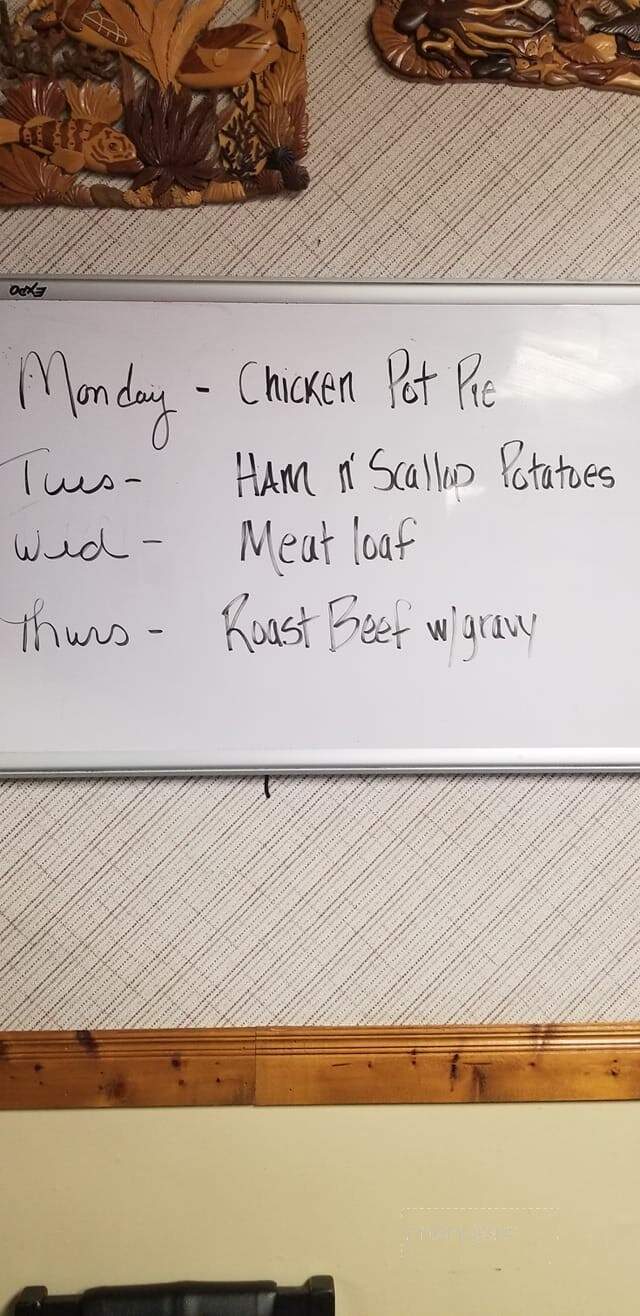 EXPO
Monday - Chicken Pot Pie
Tues- HAM n' Scallop Potatoes
Wed - Meat loaf
Thurs - Roast Beef w/gravy